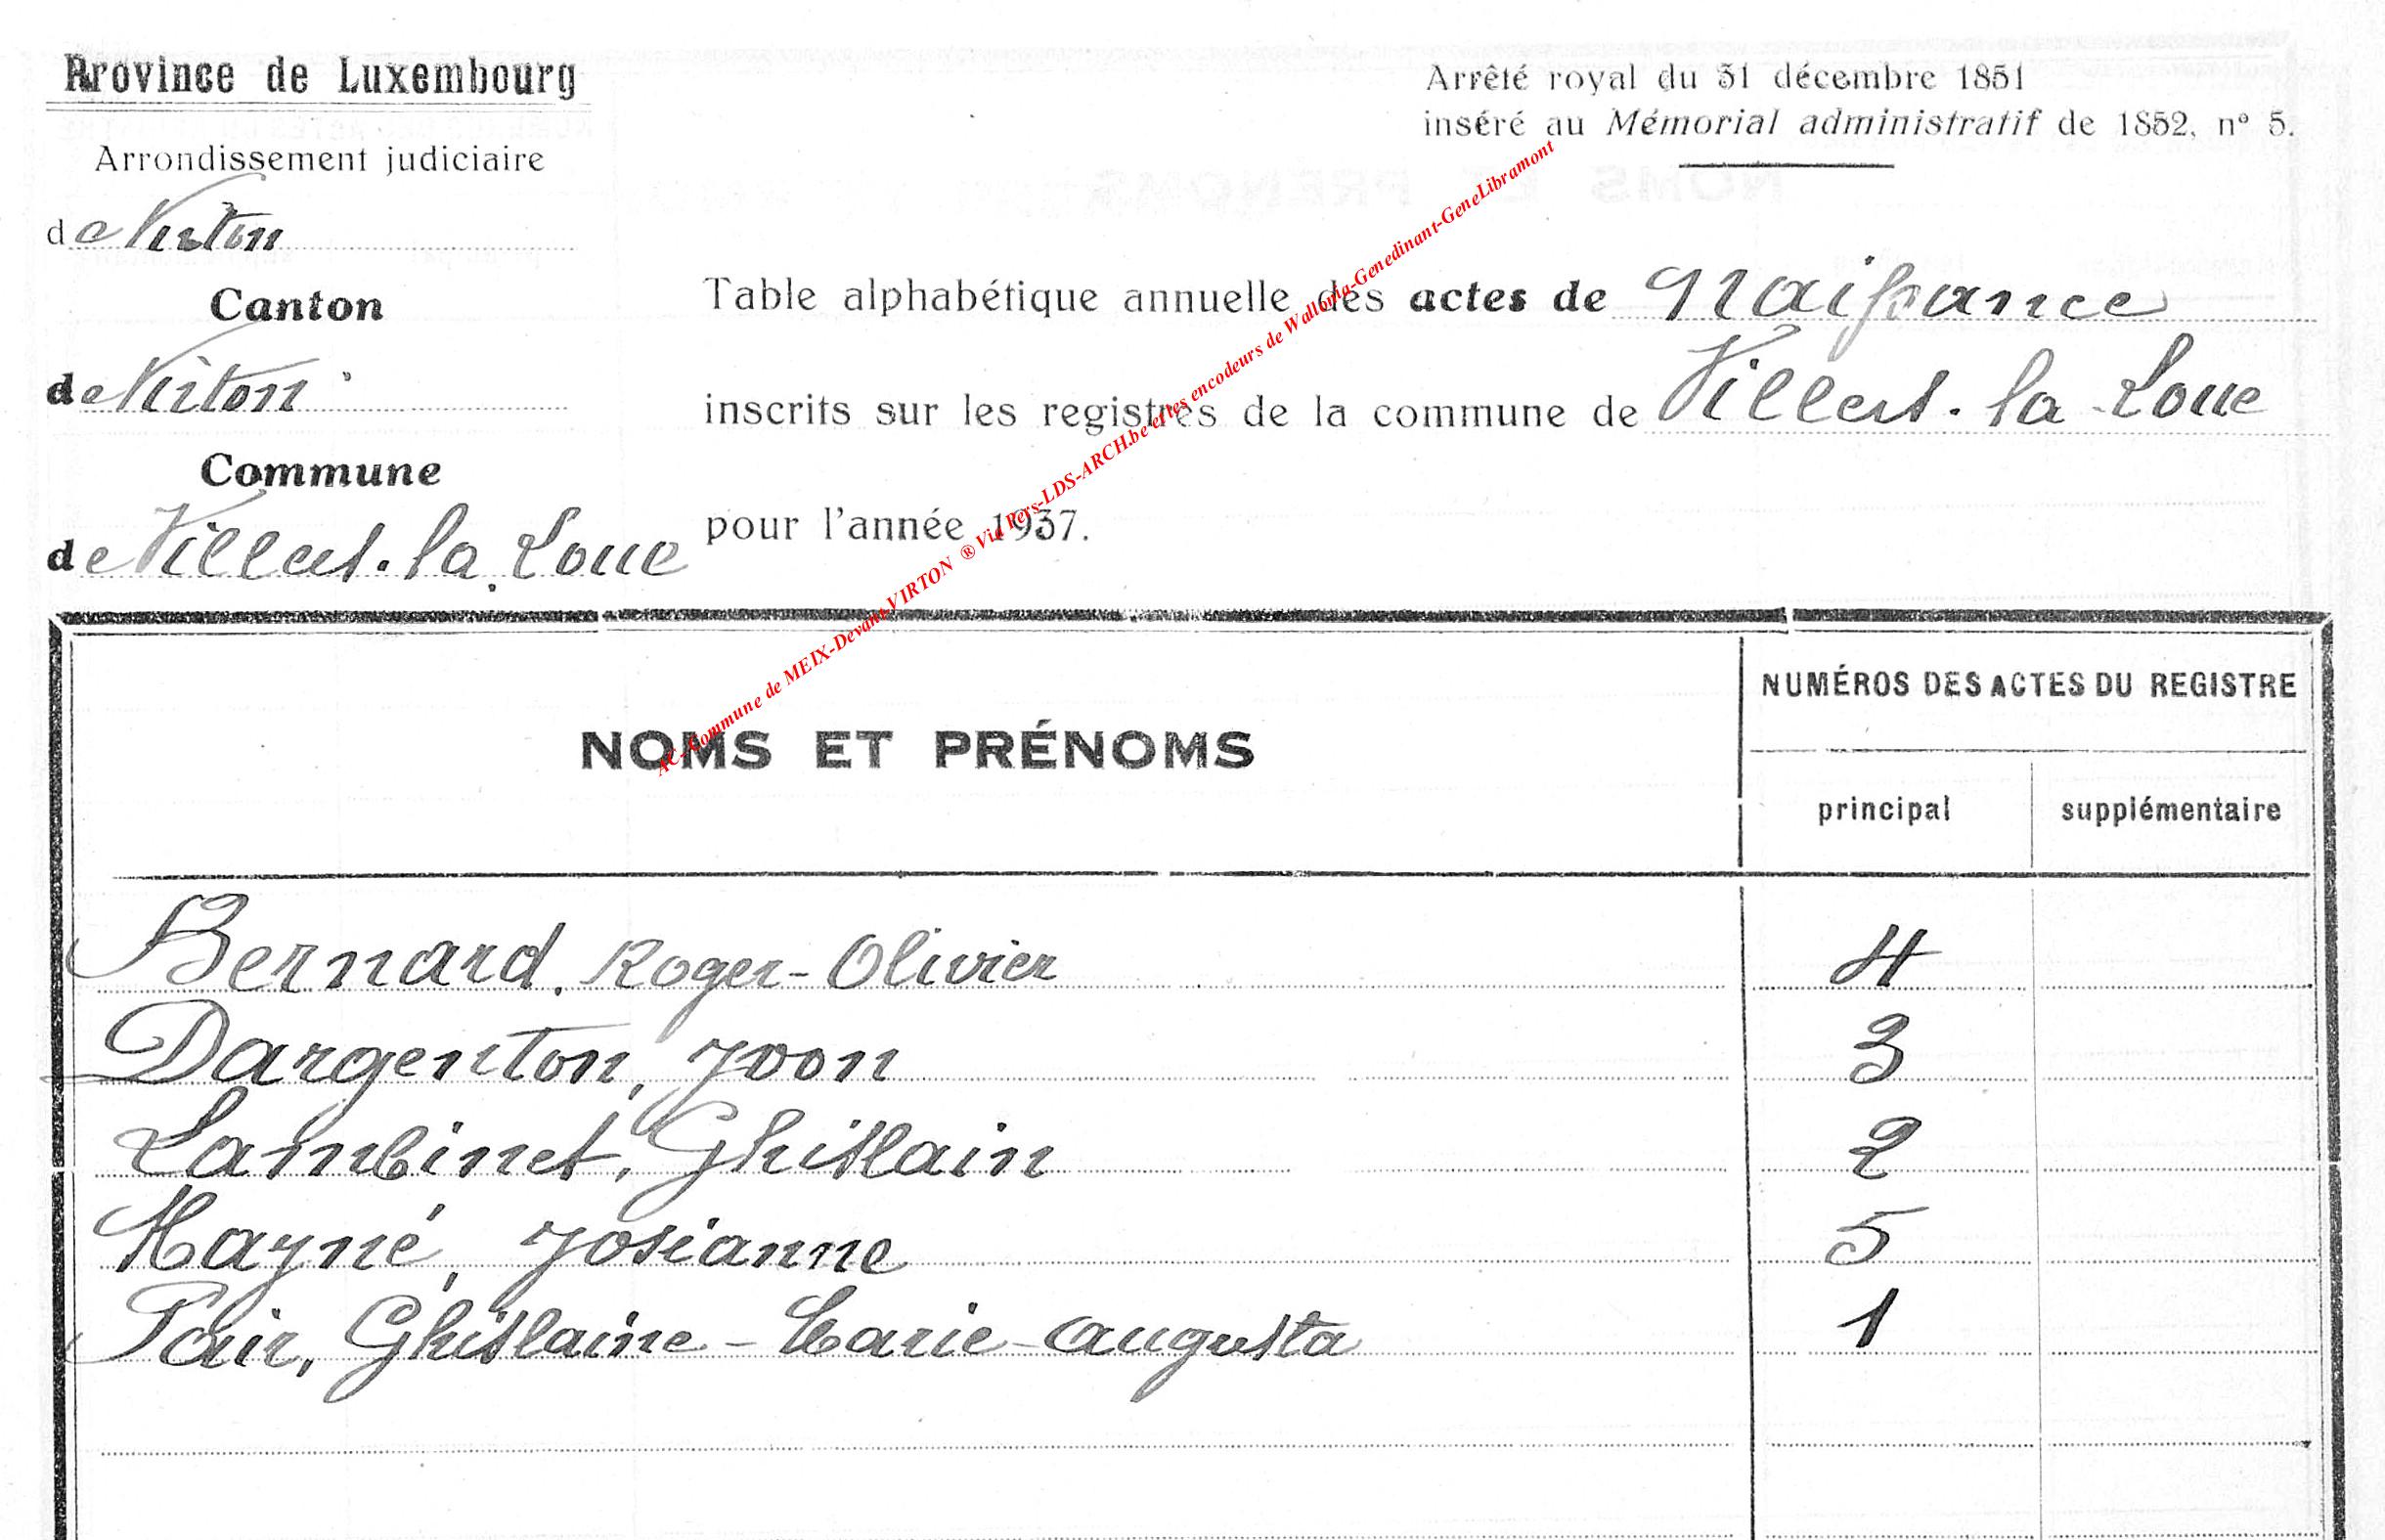 Province de Luxembourg
Arrondissement judiciaire
de Virton
Canton
de Virton
Commune
de Villers-la-Loue
Arrêté royal du 31 décembre 1851
inséré au Mémorial administratif de 1852, nº 5.
Table alphabétique annuelle des actes de Naissance
inscrits sur les registres de la commune de Villers-la-Loue
pour l'année 1937.
AC-Commune de MEIX-Devant-VIRTON ® Via Pers-LDS-ARCH.be et les encodeurs de Wallonia-Genedinant-GeneLibramont
NOMS ET PRÉNOMS
NUMÉROS DES ACTES DU REGISTRE
principal supplémentaire
Bernard, Roger-Olivier 4
Dargenton, Yvon 3
Lambinet, Ghislain 2
Mayné, Josianne 5
Pair, Ghislaine-Marie-Augusta 1